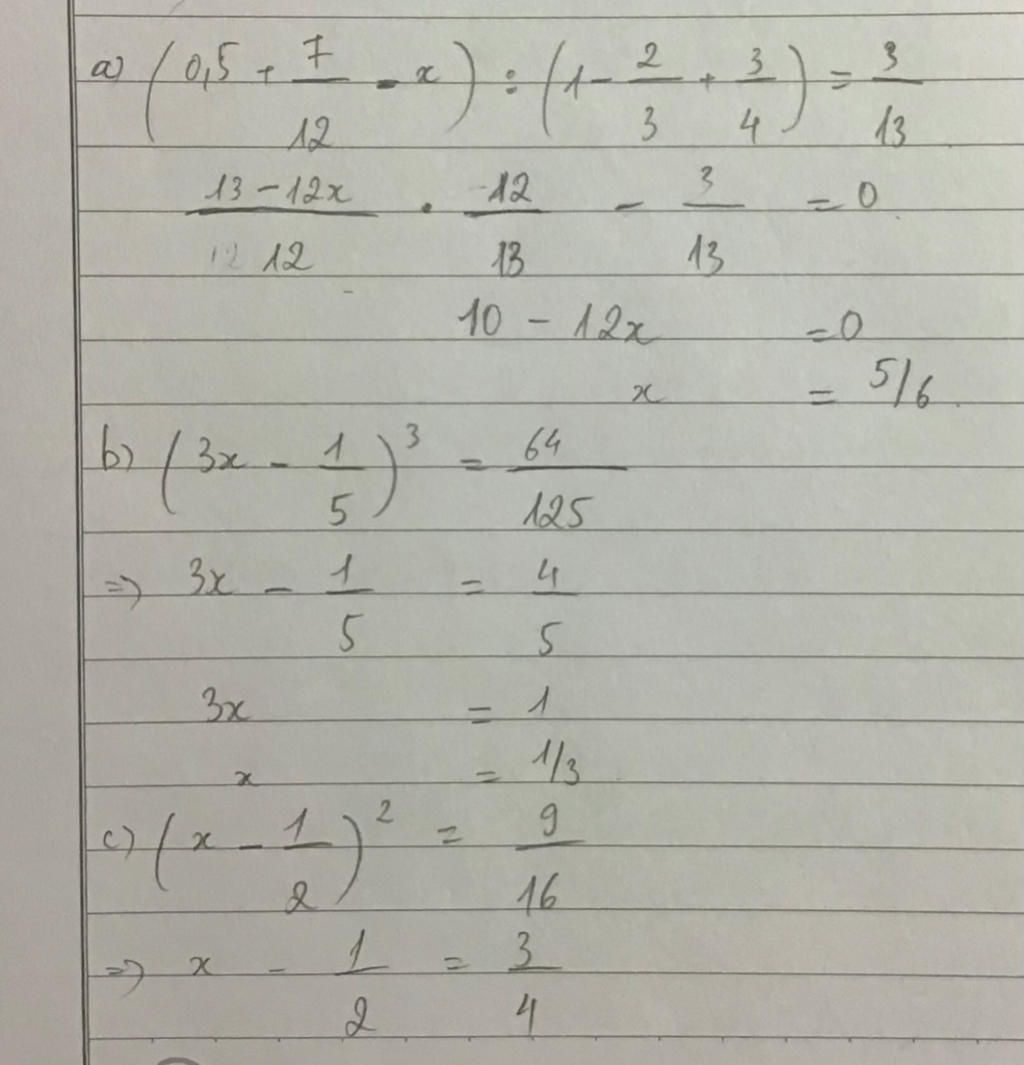 a) (0,5 + 7/12 - x) : (1 - 2/3 + 3/4) = 3/13
13 - 12x/12 . 12/13 - 3/13 = 0
10 - 12x = 0
x = 5/6.
b) (3x - 1/5)³ = 64/125
=> 3x - 1/5 = 4/5
3x = 1
x = 1/3
c) (x - 1/2)² = 9/16
=> x - 1/2 = 3/4